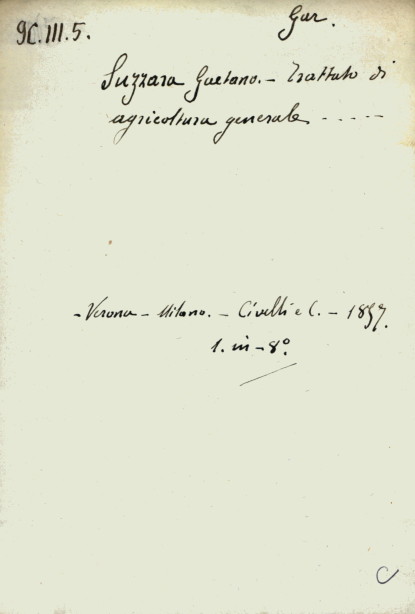 9C.III.5.
Gar.
Suzzara Gaetano. – Trattato di
agricoltura generale - - - - -
- Verona – Milano. – Civelli e C. – 1857.
1. in – 8°.
C